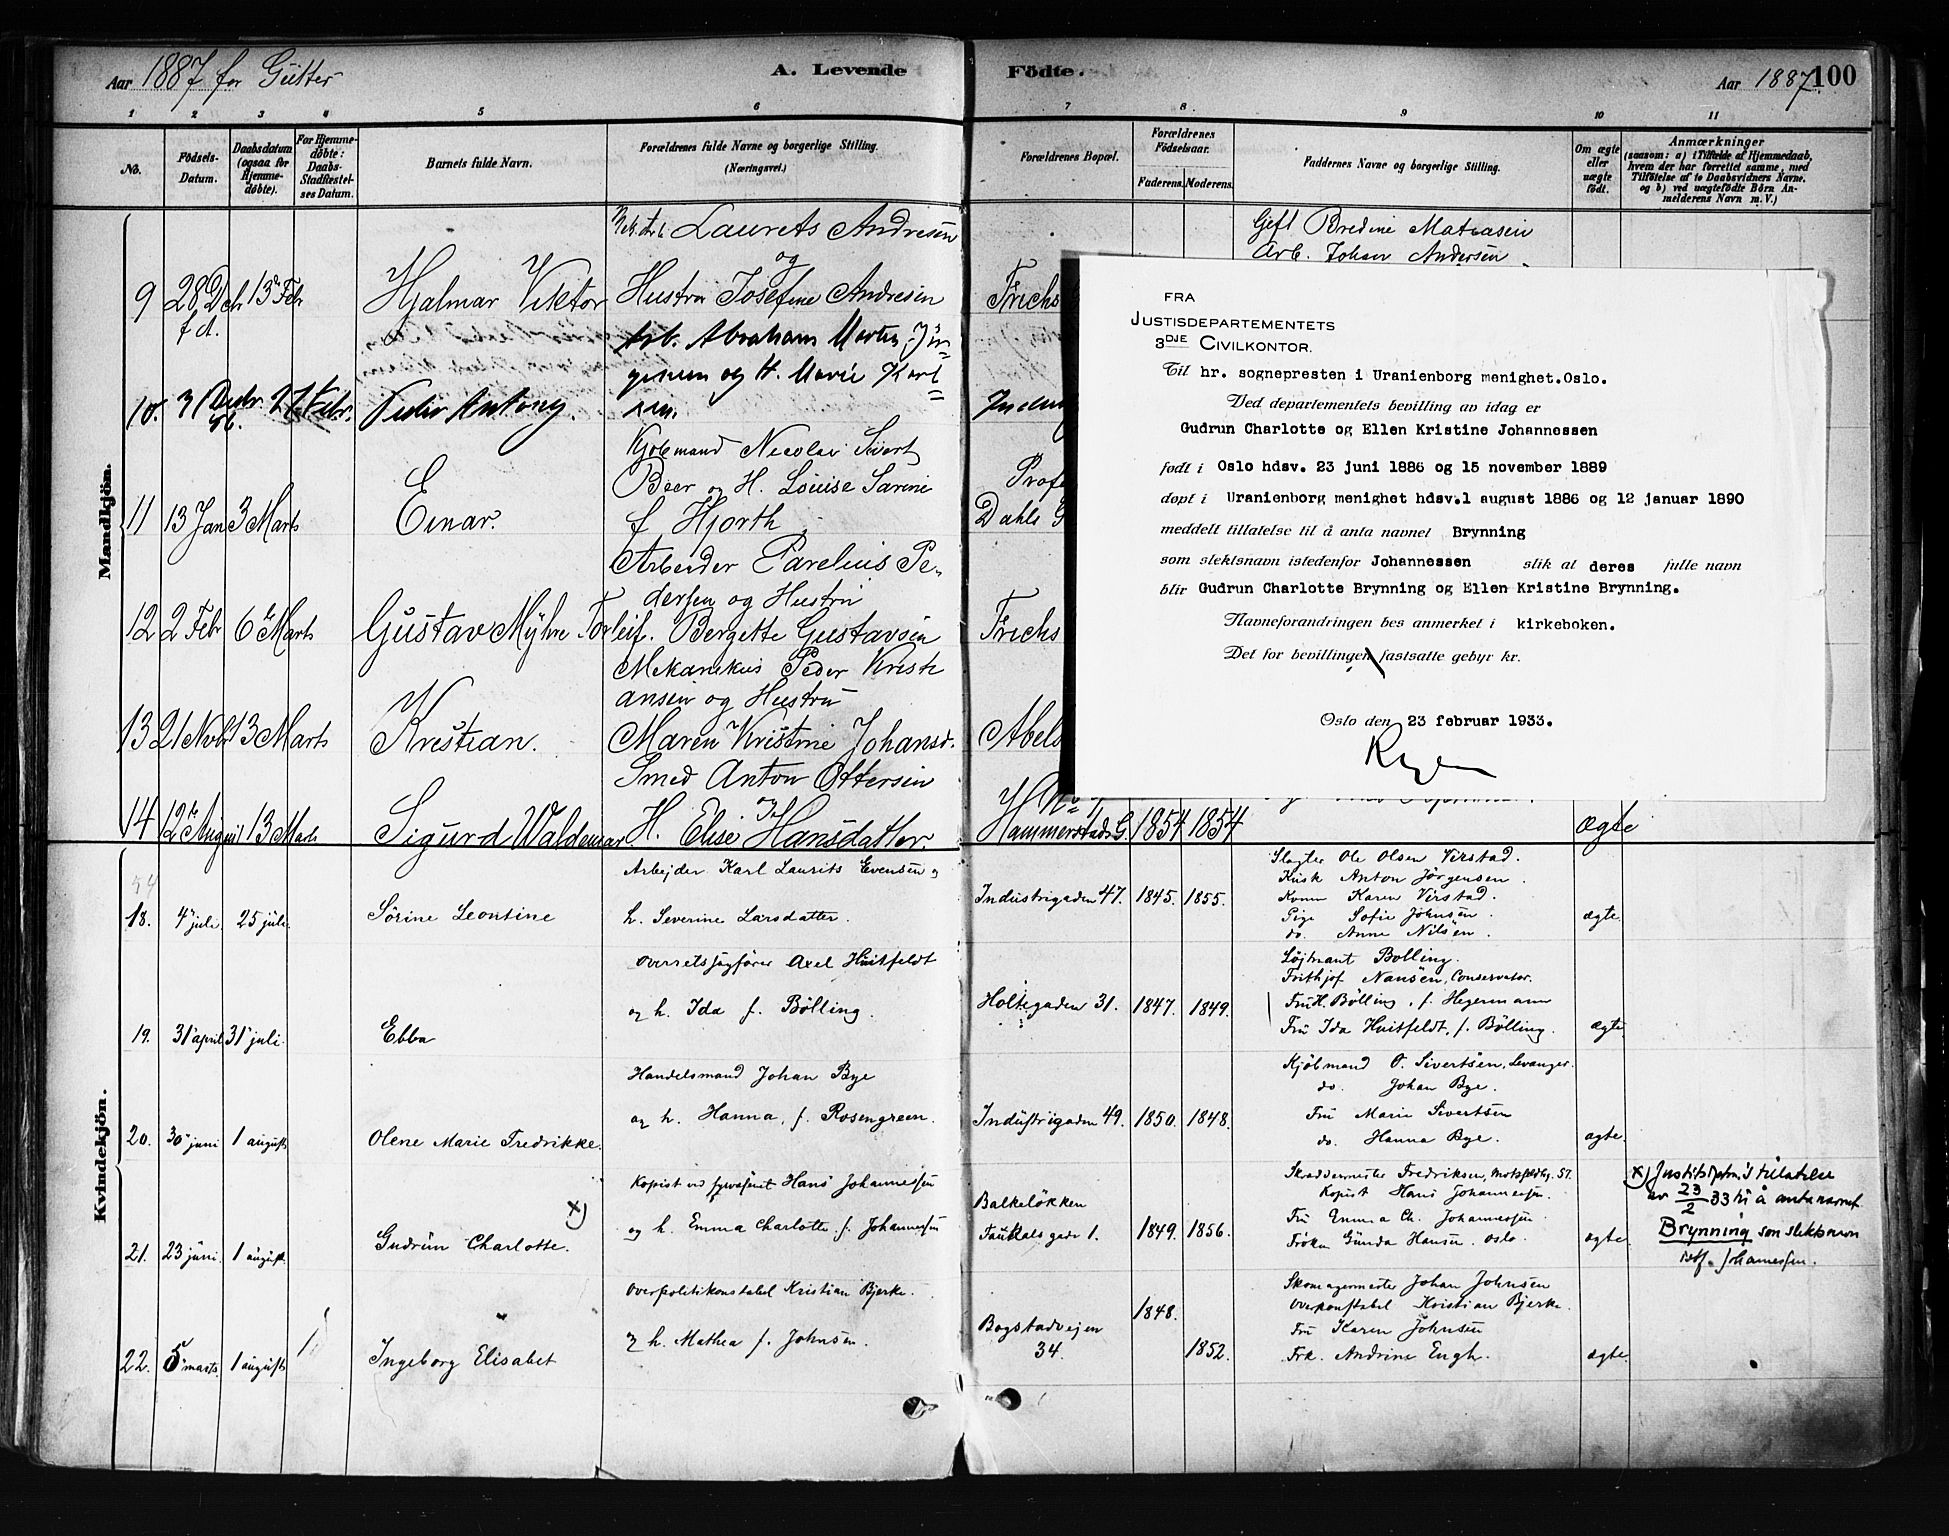 Aar 1887 for Gutter
A. Levende Födte.
Aar 1887. 100
1 2 3 4 5 6 7 8. 9 10 11
No.
Födsels-Datum.
Daabsdatum (ogsaa for Hjemme-döbte).
For Hjemme-döbte: Daabs Stadfæstel-ses Datum.
Barnets fulde Navn.
Forældrenes fulde Navne og borgerlige Stilling.
(Næringsvei.)
Forældrenes Bopæl.
Forældrenes Födselsaar.
Faderens. Moderens.
Faddernes Navne og borgerlige Stilling.
Om ægte eller uægte födt.
Anmærkninger
(saasom: a) i Tilfælde af Hjemmedaab, hvem der har forrettet samme, med Tilföielse af to Daabsvidners Navne. og b) ved uægtefödte Börn An-melderens Navn m. V.)
Mandkjön.
Laurets Andresen
og
9 28 Dcb 13 Feb Hjalmar Viktor Hustru Josefine Andresen Frichs
Gefl Bredine Matiasen
Arb. Johan Andersen
Arb. Abraham Morten Jör=
gensen og H. Marie Karl=
10. 31 Decbr. 86. 27 Febr. Peder Antony. sen. Industr
Kjöbmand Nicolai Sivert
Beer og H. Louise Sarine
11 13 Jan 3 Marts Einar. f Hjorth Profe Dahls G
Arbeider Parelius Pe-
dersen og Hustru
12 2 Febr 6 Marts Gustav Myhre Torleif. Bergette Gustavsen Frichs
Mekanikus Peder Kristi
ansen og Hustru
13 21 Nvbr 13 Marts Kristian. Maren Kristine Johansd. Abels
Smed Anton Ottersen
og
14 12 August 13 Marts Sigurd Waldemar H. Elise Hansdatter. Hammerstads G. 1854 1854 Ægte
FRA
JUSTISDEPARTEMENTETS
3DJE CIVILKONTOR.
Til hr. sognepresten i Uranienborg menighet.Oslo.
Ved departementets bevilling av idag er
Gudrun Charlotte og Ellen Kristine Johannessen
født i Oslo hdsv. 23 juni 1886 og 15 november 1889
døpt i Uranienborg menighet hdsv.1 august 1886 og 12 januar 1890
meddelt tillatelse til å anta navnet Brynning
som slektsnavn istedenfor Johannessen slik at deres fulle navn
blir Gudrun Charlotte Brynning og Ellen Kristine Brynning.
Navneforandringen bes anmerket i kirkeboken.
Det for bevillingen fastsatte gebyr kr.
Oslo den 23 februar 1933.
Kvindekjön.
54
Arbejder Karl Laurits Evensen og
18. 4 juli. 25 juli. Sörine Leontine h. Severine Larsdatter. Industrigaden 47. 1845. 1855.
Slagter Ole Olsen Virstad.
Kusk Anton Jörgensen.
Kone Karen Virstad.
Pige Sofie Johnsen.
do. Anne Nilsen. ægte.
Overretssagförer Axel Huitfeldt
19. 31 april 31 juli. Ebba og h. Ida f. Bölling. Holtegaden 31. 1847. 1849.
Löjtnant Bolling.
Frithjof Nansen, Conservator.
Fru H. Bölling, f. Hegermann
Fru Ida Huitfeldt, f. Bölling. ægte.
Handelsmand Johan Bye
20. 30 juni 1 august Olene Marie Fredrikke. og h. Hanna, f. Rosengreen. Industrigaden 49. 1850. 1848.
Kjöbmand O. Sivertsen, Levanger.
do. Johan Bye.
Fru Marie Sivertsen
do. Hanna Bye. ægte.
Kopist ved Hans Johannessen
21. 23 juni. 1 august. Gudrun Charlotte. x) og h. Emma Charlotte f. Johannessen
Balkeløkken
gade 1. 1849. 1856.
Fredriksen, 57.
Kopist Hans Johannessen.
Fru Emma Ch. Johannessen
Fröken Gunda Hansen. Oslo. ægte.
x) Justitsdptm's tillatelse
av 23/2 33 til å anta navnet
Brynning som slektsnavn
istf. Johannessen.
Overpolitikonstabel Kristian Bjerke.
22. 5 marts. 1 august 1 Ingeborg Elisabet og h. Mathea f. Johnsen. Bogstadvejen 34. 1848. 1852.
Skomagermester Johan Johnsen
Overkonstabel Kristian Bjerke.
Fru Karen Johnsen
Frk. Andrine Engh. ægte.